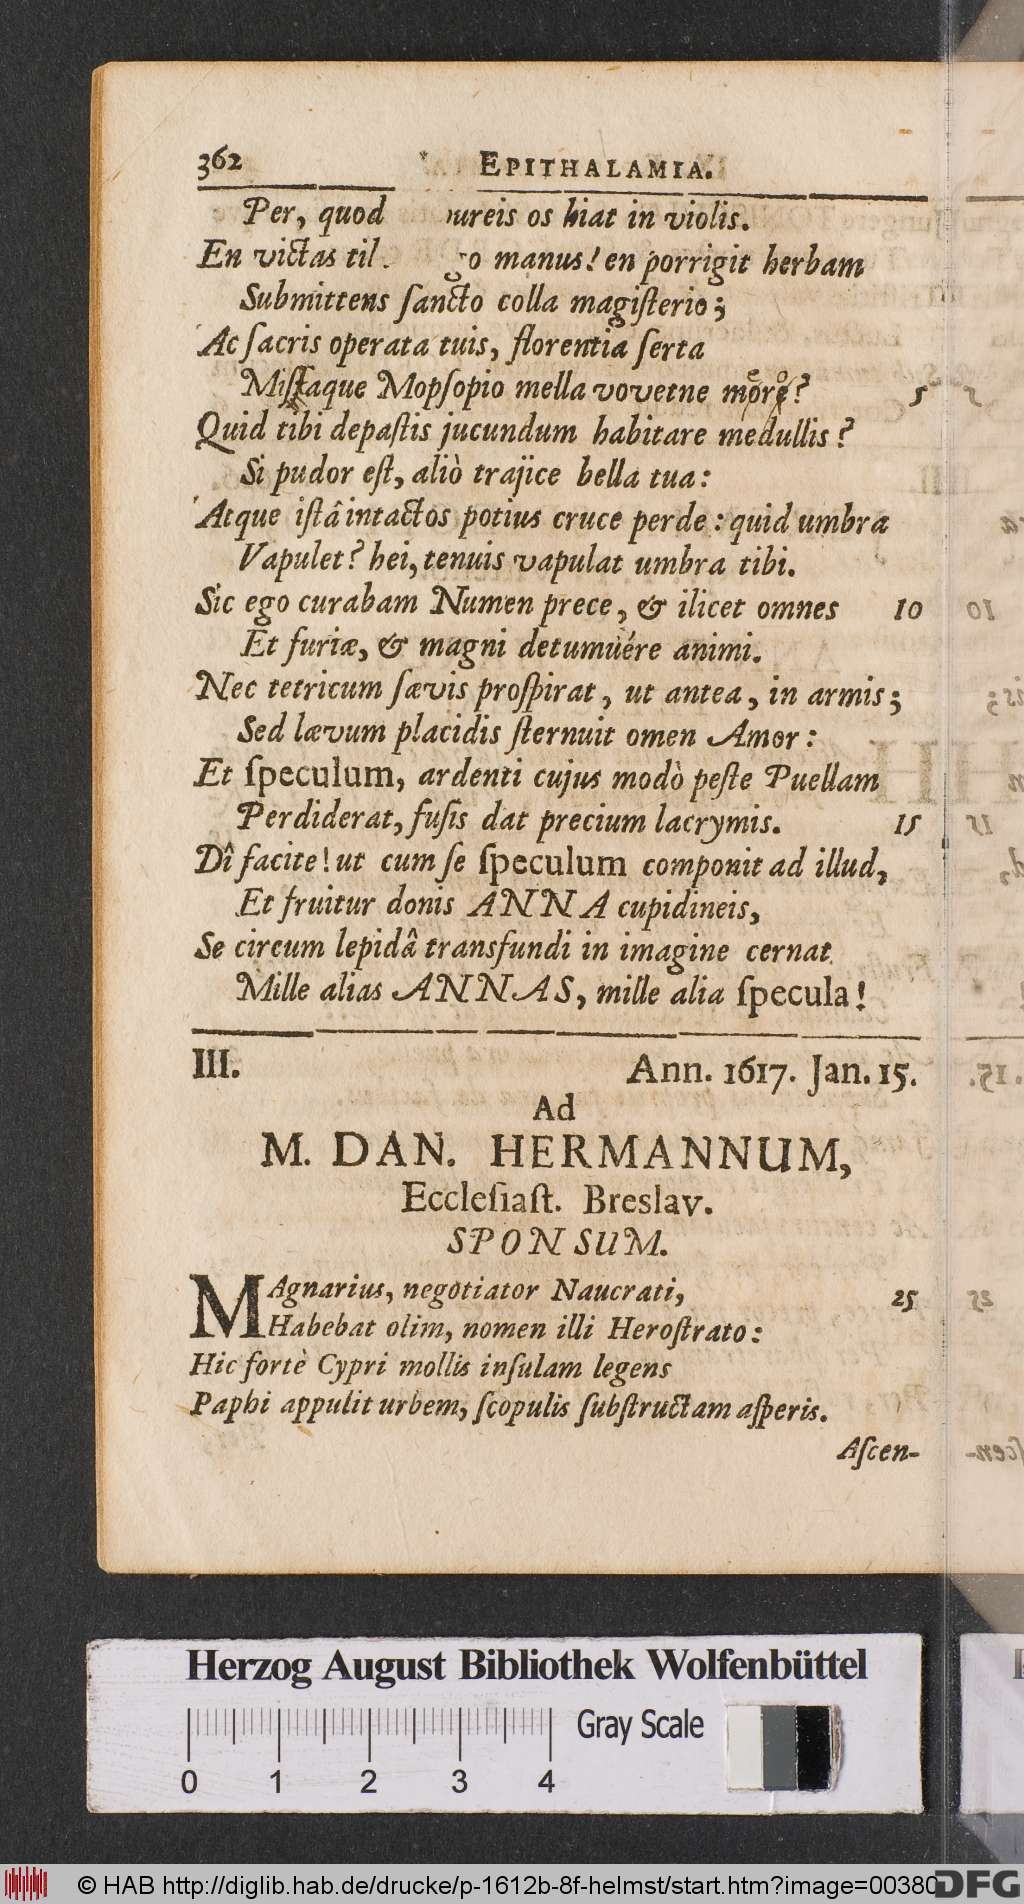 362 EPITHALAMIA.
Per, quod os hiat in violis.
En victas manus! en porrigit herbam
Submittens ſancto colla magiſterio;
Ac ſacris operata tuis, florentia ſerta
Miſtaque Mopſopio mella vovetne ? 5
Quid tibi depaſtis jucundum habitare medullis?
Si pudor eſt, aliò trajice bella tua:
Atque iſtâ intactos potius cruce perde: quid umbra
Vapulet? hei, tenuis vapulat umbra tibi.
Sic ego curabam Numen prece, & ilicet omnes 10
Et furiæ, & magni detumuére animi.
Nec tetricum ſævis proſpirat, ut antea, in armis;
Sed lævum placidis ſternuit omen Amor:
Et ſpeculum, ardenti cujus modò peſte Puellam
Perdiderat, fuſis dat precium lacrymis. 15
Dî facite! ut cum ſe ſpeculum componit ad illud,
Et fruitur donis ANNA cupidineis,
Se circum lepidâ transfundi in imagine cernat
Mille alias ANNAS, mille alia ſpecula!
III. Ann. 1617. Jan. 15.
Ad
M. DAN. HERMANNUM,
Eccleſiaſt. Breslav.
SPONSUM.
MAgnarius, negotiator Naucrati, 25
Habebat olim, nomen illi Heroſtrato:
Hic fortè Cypri mollis inſulam legens
Paphi appulit urbem, ſcopulis ſubſtructam aſperis.
Aſcen-
Herzog August Bibliothek Wolfenbüttel
Gray Scale
0 1 2 3 4
© HAB http://diglib.hab.de/drucke/p-1612b-8f-helmst/start.htm?image=00380
DFG